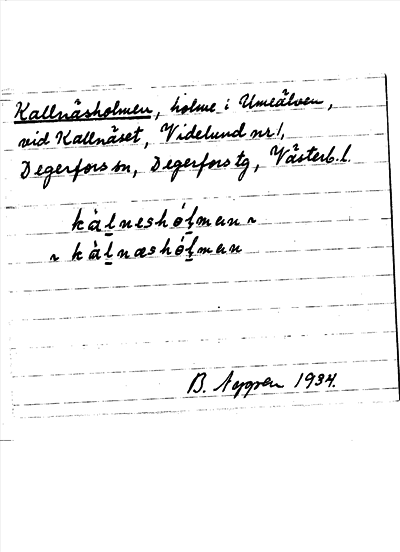 Kallnäsholmen, holme i Umeälven,
vid Kallnäset, Videlund nr 1,
Degerfors sn, Degerfors tg, Västerb. l.
kàl̲neshól̲man ~
~ kàl̲næshól̲man
B. Nygren 1934.